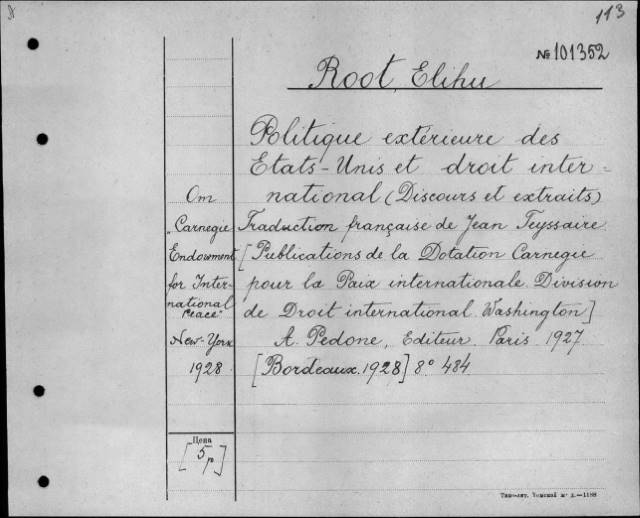 113
№ 101352
Root, Elihu
Politique extérieure des
Etats-Unis et droit inter-
national (Discours et extraits)
Traduction française de Jean Teyssaire.
[Publications de la Dotation Carnegie
pour la Paix internationale. Division
de Droit international. Washington]
A. Pedone, Editeur. Paris 1927
[Bordeaux. 1928] 8° 484.
Om
"Carnegie
Endowment
for Inter-
national
Peace"
New-York
1928.
Цена
[5 р]
Типо-лит. Томской ж. д.—1188